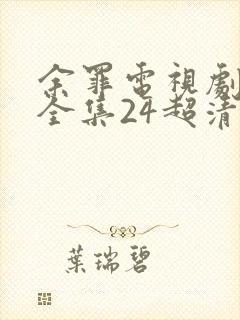 余罪電視劇
全集24超清
葉瑞碧